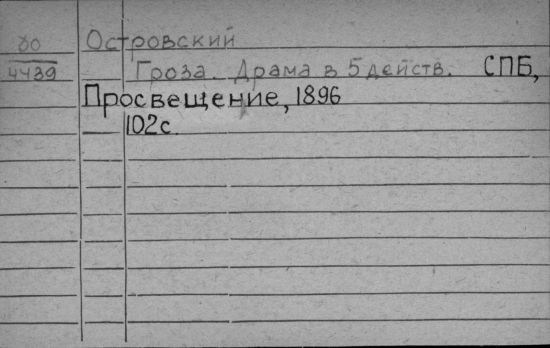 80 Островский
4439 Гроза. Драма в 5 действ. СПБ,
Просвещение, 1896
102с